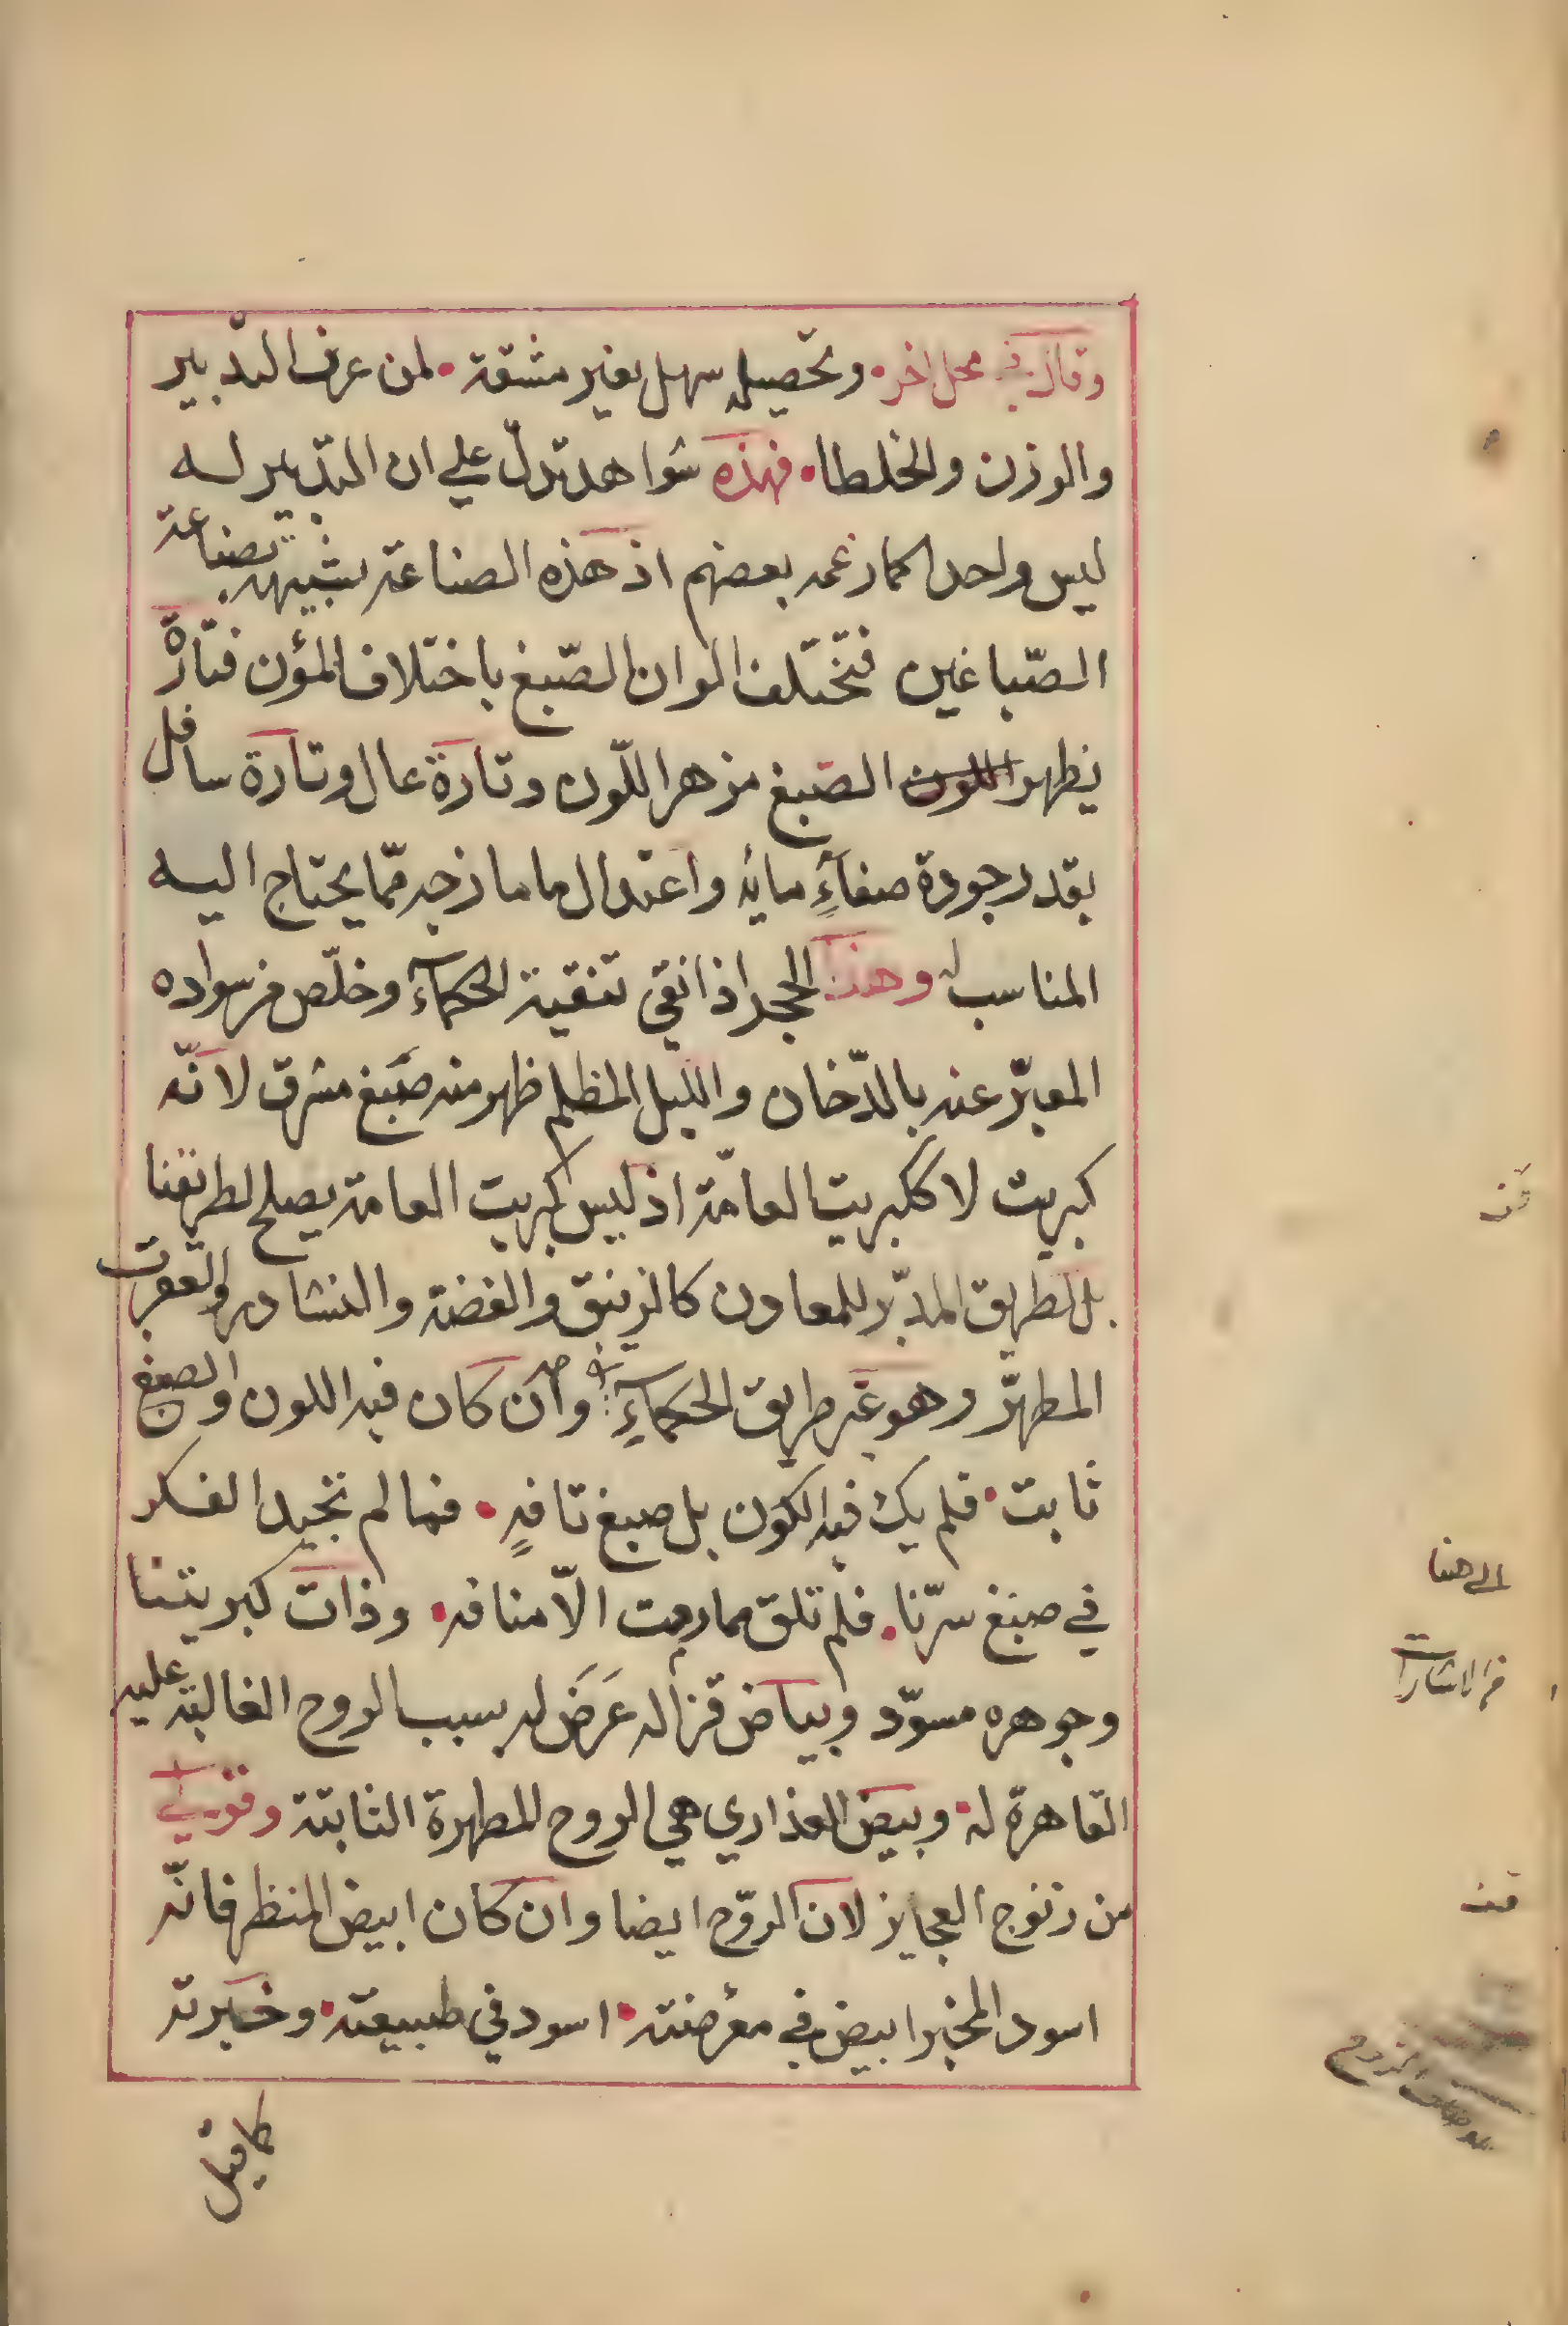 وقال في محل اخر. وتحصيله سهل بغير مشقة. لمن عرف التدبير
والوزن والخلطا. فهذه شواهد تدلّ علي ان التدبير له
ليس واحد كما زعمه بعضهم اذ هذه الصناعة شبيهة بصناعة
الصّباغين فتختلف الوان الصّبغ باختلاف المؤن فتارةً
يظهر اللون الصّبغ مزهر اللّون وتارة عال وتارة سافل
بقدر جودة صفاءٍ مايه واعتدال ما مازجه ممّا يحتاج اليه
المناسب له وهذا الحجر اذا نقي تنقية الحكمآء وخلّص من سواده
المعبّر عنه بالدّخان والليل المظلم ظهر منه صَبغ مشرق لانّه
كبريت لا ككبريت العامّة اذ ليس كبريت العامة يصلح لطريقنا
بل لطريق المدبّر للمعادن كالزيبق والفضة والنشادر والعقرب
المطهّر وهو غير طريق الحكمآءِ وان كان فيه اللون والصبغ
ثابت. فلم يك فيه الكون بل صبغ تافهٍ. فما لم تجيد الفكر
في صبغ سرّنا. فلم تلق مما رمت الّا منافه. وذات كبريتنا
وجوهره مسوّد وبياض قزاله عَرَض له بسبب الروح الغالبة عليه
القاهرة له. وبيض العذاري هي الروح المطهرة الثابتة وقولي
من زنوج العجايز لان الروّح ايضا وان كان ابيض المنظر فانّه
اسود المخبر ابيض في معرضته. اسود في طبيعته. وخبرته
كما قيل
الي هنا
من الاشارات